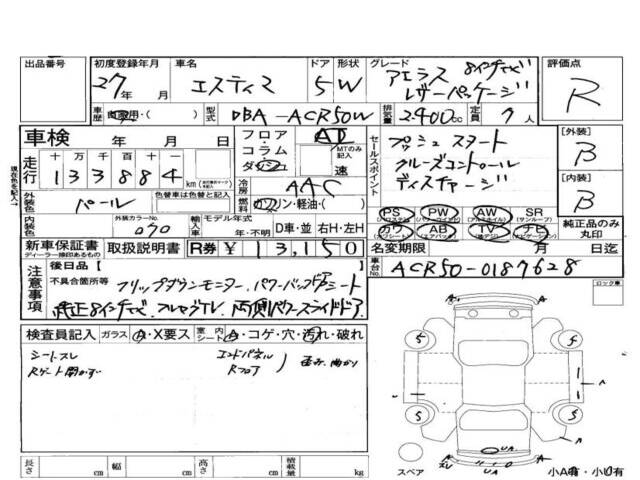 出品番号 初度登録年月 車名 ドア 形状 グレード 評価点
27年 月 エスティマ 5 W アエラス 8インチナビ R
レザーパッケージ
車歴 自家用・( ) 型式 DBA-ACR50W 排気量 2,400cc 定員 7人
車検 年 月 日 フロア・コラム・ダッシュ AT MTのみ記入 速 セールスポイント プッシュスタート [外装]
走行 十万千百十一 B
133884 km クルーズコントロール
冷房 AAC ディスチャージ [内装]
外装色 パール 色替車は色替と記入 燃料 ガソリン・軽油・( ) B
内装色 外装カラーNo. 070 輸入車 モデル年式 年・不明 D車・並 右H・左H PS PW AW SR (サンルーフ) 純正品のみ丸印
カワ AB TV ナビ
新車保証書 取扱説明書 R券 ¥13,150 名変期限 月 日迄
ディーラー捺印あるもの
車台No. ACR50-0187628
注意事項 後日品( ) ロック車
不具合箇所等 フリップダウンモニター.パワーバックドア
純正8インチナビ.フルセグTV.両側パワースライドドア
検査員記入 ガラス A・X要ス 室内シート A・コゲ・穴・汚れ・破れ
シートスレ エンドパネル 歪み.曲がり
Rゲート開かず Rフロア
A A
5 5
1
1 A
5 5
A
UA
UA
スペア 小A有・小U有
長さ cm 幅 cm 高さ cm 積載量 kg